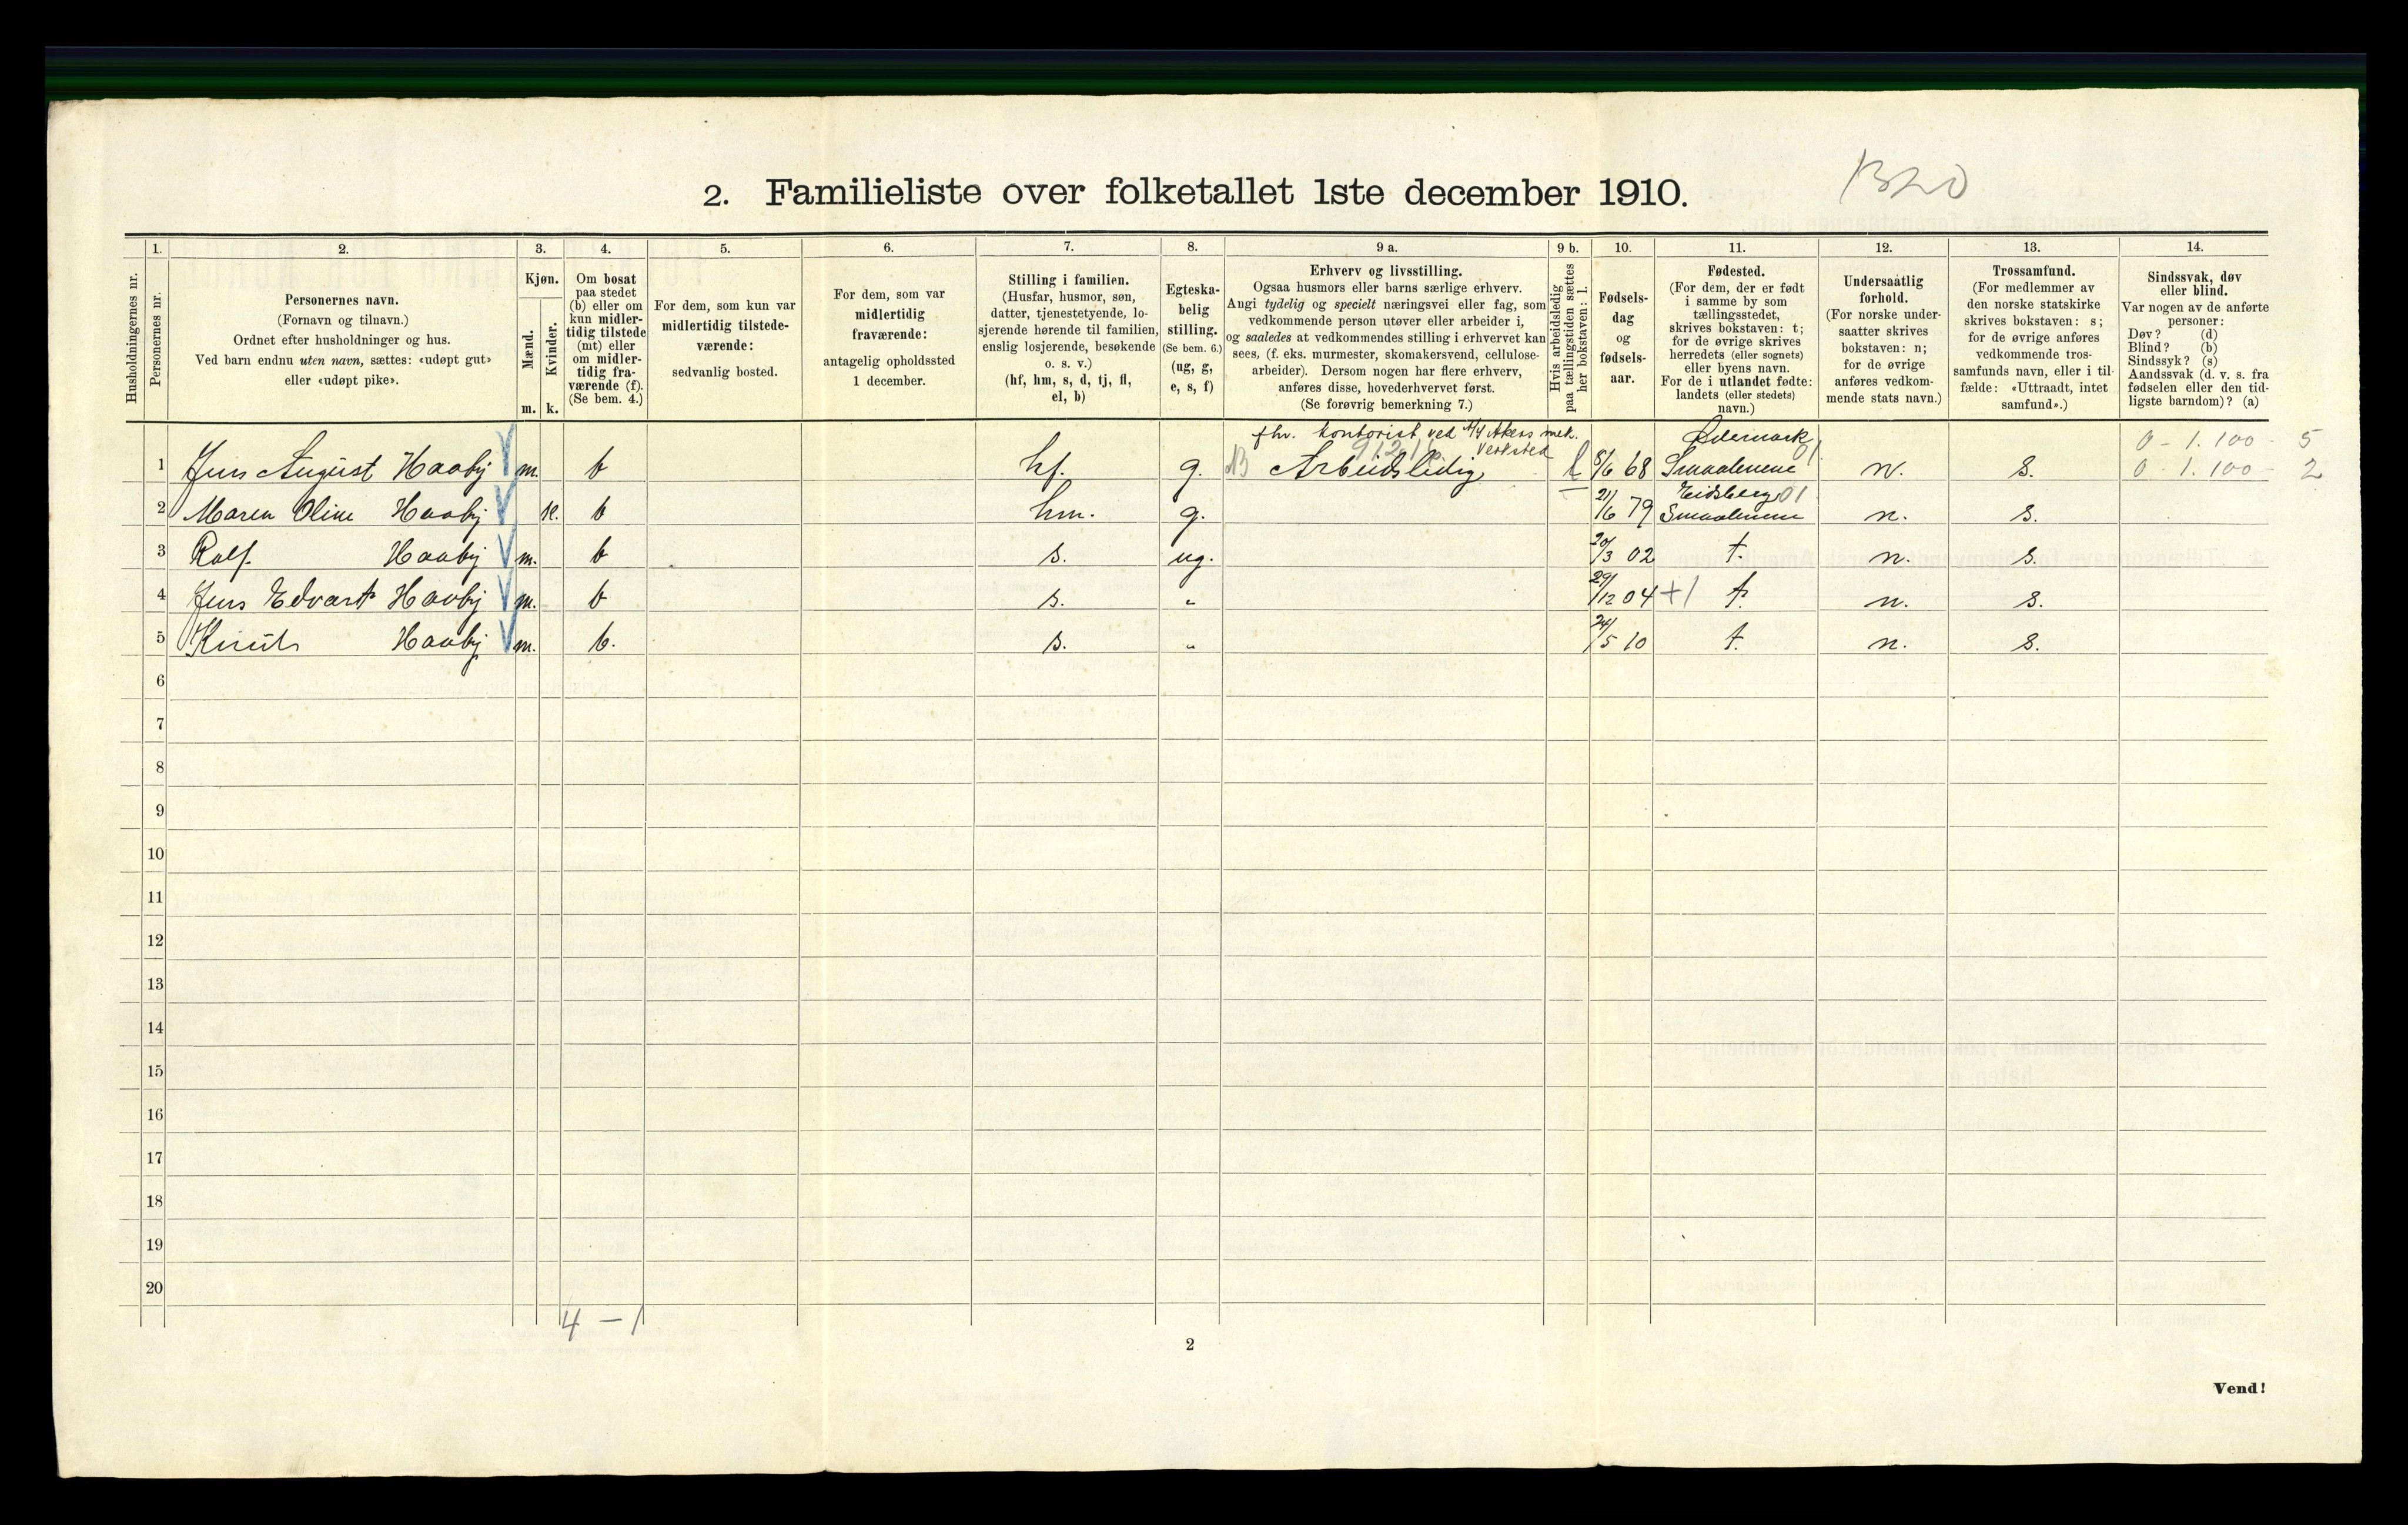 2. Familieliste over folketallet 1ste december 1910.
1320
1. 2. 3. 4. 5. 6. 7. 8. 9 a. 9 b. 10. 11. 12. 13. 14.
Husholdningernes nr.
Personernes nr.
Personernes navn.
(Fornavn og tilnavn.)
Ordnet efter husholdninger og hus.
Ved barn endnu uten navn, sættes: «udøpt gut»
eller «udøpt pike».
Kjøn.
Mænd.
Kvinder.
m. k.
Om bosat
paa stedet
(b) eller om
kun midler-
tidig tilstede
(mt) eller
om midler-
tidig fra-
værende (f).
(Se bem. 4.)
For dem, som kun var
midlertidig tilstede-
værende:
sedvanlig bosted.
For dem, som var
midlertidig
fraværende:
antagelig opholdssted
1 december.
Stilling i familien.
(Husfar, husmor, søn,
datter, tjenestetyende, lo-
sjerende hørende til familien,
enslig losjerende, besøkende
o. s. v.)
(hf, hm, s, d, tj, fl,
el, b)
Egteska-
belig
stilling.
(Se bem. 6.)
(ug, g,
e, s, f)
Erhverv og livsstilling.
Ogsaa husmors eller barns særlige erhverv.
Angi tydelig og specielt næringsvei eller fag, som
vedkommende person utøver eller arbeider i,
og saaledes at vedkommendes stilling i erhvervet kan
sees, (f. eks. murmester, skomakersvend, cellulose-
arbeider). Dersom nogen har flere erhverv,
anføres disse, hovederhvervet først.
(Se forøvrig bemerkning 7.)
Hvis arbeidsledig
paa tællingstiden sættes
her bokstaven: l.
Fødsels-
dag
og
fødsels-
aar.
Fødested.
(For dem, der er født
i samme by som
tællingsstedet,
skrives bokstaven: t;
for de øvrige skrives
herredets (eller sognets)
eller byens navn.
For de i utlandet fødte:
landets (eller stedets)
navn.)
Undersaatlig
forhold.
(For norske under-
saatter skrives
bokstaven: n;
for de øvrige
anføres vedkom-
mende stats navn.)
Trossamfund.
(For medlemmer av
den norske statskirke
skrives bokstaven: s;
for de øvrige anføres
vedkommende tros-
samfunds navn, eller i til-
fælde: «Uttraadt, intet
samfund».)
Sindssvak, døv
eller blind.
Var nogen av de anførte
personer:
Døv? (d)
Blind? (b)
Sindssyk? (s)
Aandssvak (d. v. s. fra
fødselen eller den tid-
ligste barndom)? (a)
fhv. kontorist ved A/S Akers mek. Ødemark 0 - 1. 100 - 5
Verksted 01
1 Jens August Haaby m. b hf. g. Arbeidsledig l 8/6 68 Smaalenene n. s. 0 - 1. 100 - 2
Eidsberg 01
2 Maren Oline Haaby k. b hm. g. 21/6 79 Smaalenene n. s.
3 Rolf Haaby m. b s. ug. 20/3 02 t. n. s.
4 Jens Edvart Haaby m. b s. " 29/12 04 +1 t. n. s.
5 Knut Haaby m. b. s. " 24/5 10 t. n. s.
6
7
8
9
10
11
12
13
14
15
16
17
18
19
20
4 - 1
2
Vend!